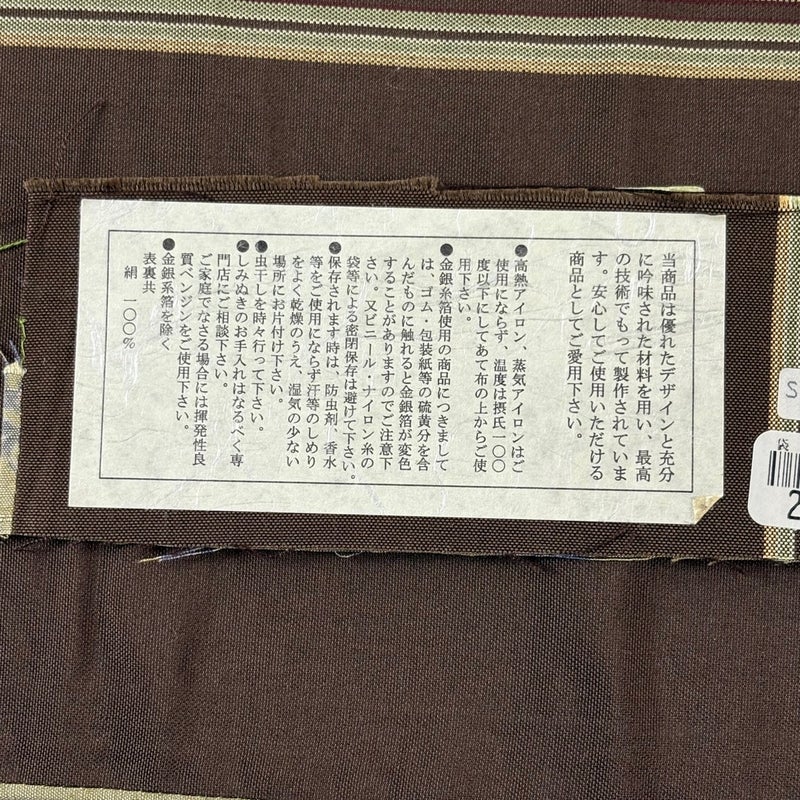 当商品は優れたデザインと充分
に吟味された材料を用い、最高
の技術でもって製作されていま
す。安心してご使用いただける
商品としてご愛用下さい。
●高熱アイロン、蒸気アイロンはご
使用にならず、温度は摂氏一〇〇
度以下にしてあて布の上からご使
用下さい。
●金銀糸箔使用の商品につきまして
は、ゴム・包装紙等の硫黄分を含
んだものに触れると金銀箔が変色
することがありますのでご注意下
さい。又ビニール・ナイロン糸の
袋等による密閉保存は避けて下さい。
●保存されます時は、防虫剤、香水
等をご使用にならず汗等のしめり
をよく乾燥のうえ、湿気の少ない
場所にお片付け下さい。
●虫干しを時々行って下さい。
●しみぬきのお手入れはなるべく専
門店にご相談下さい。
ご家庭でなさる場合には揮発性良
質ベンジンをご使用下さい。
●金銀系箔を除く
表裏共
絹 一〇〇%
S
袋
2